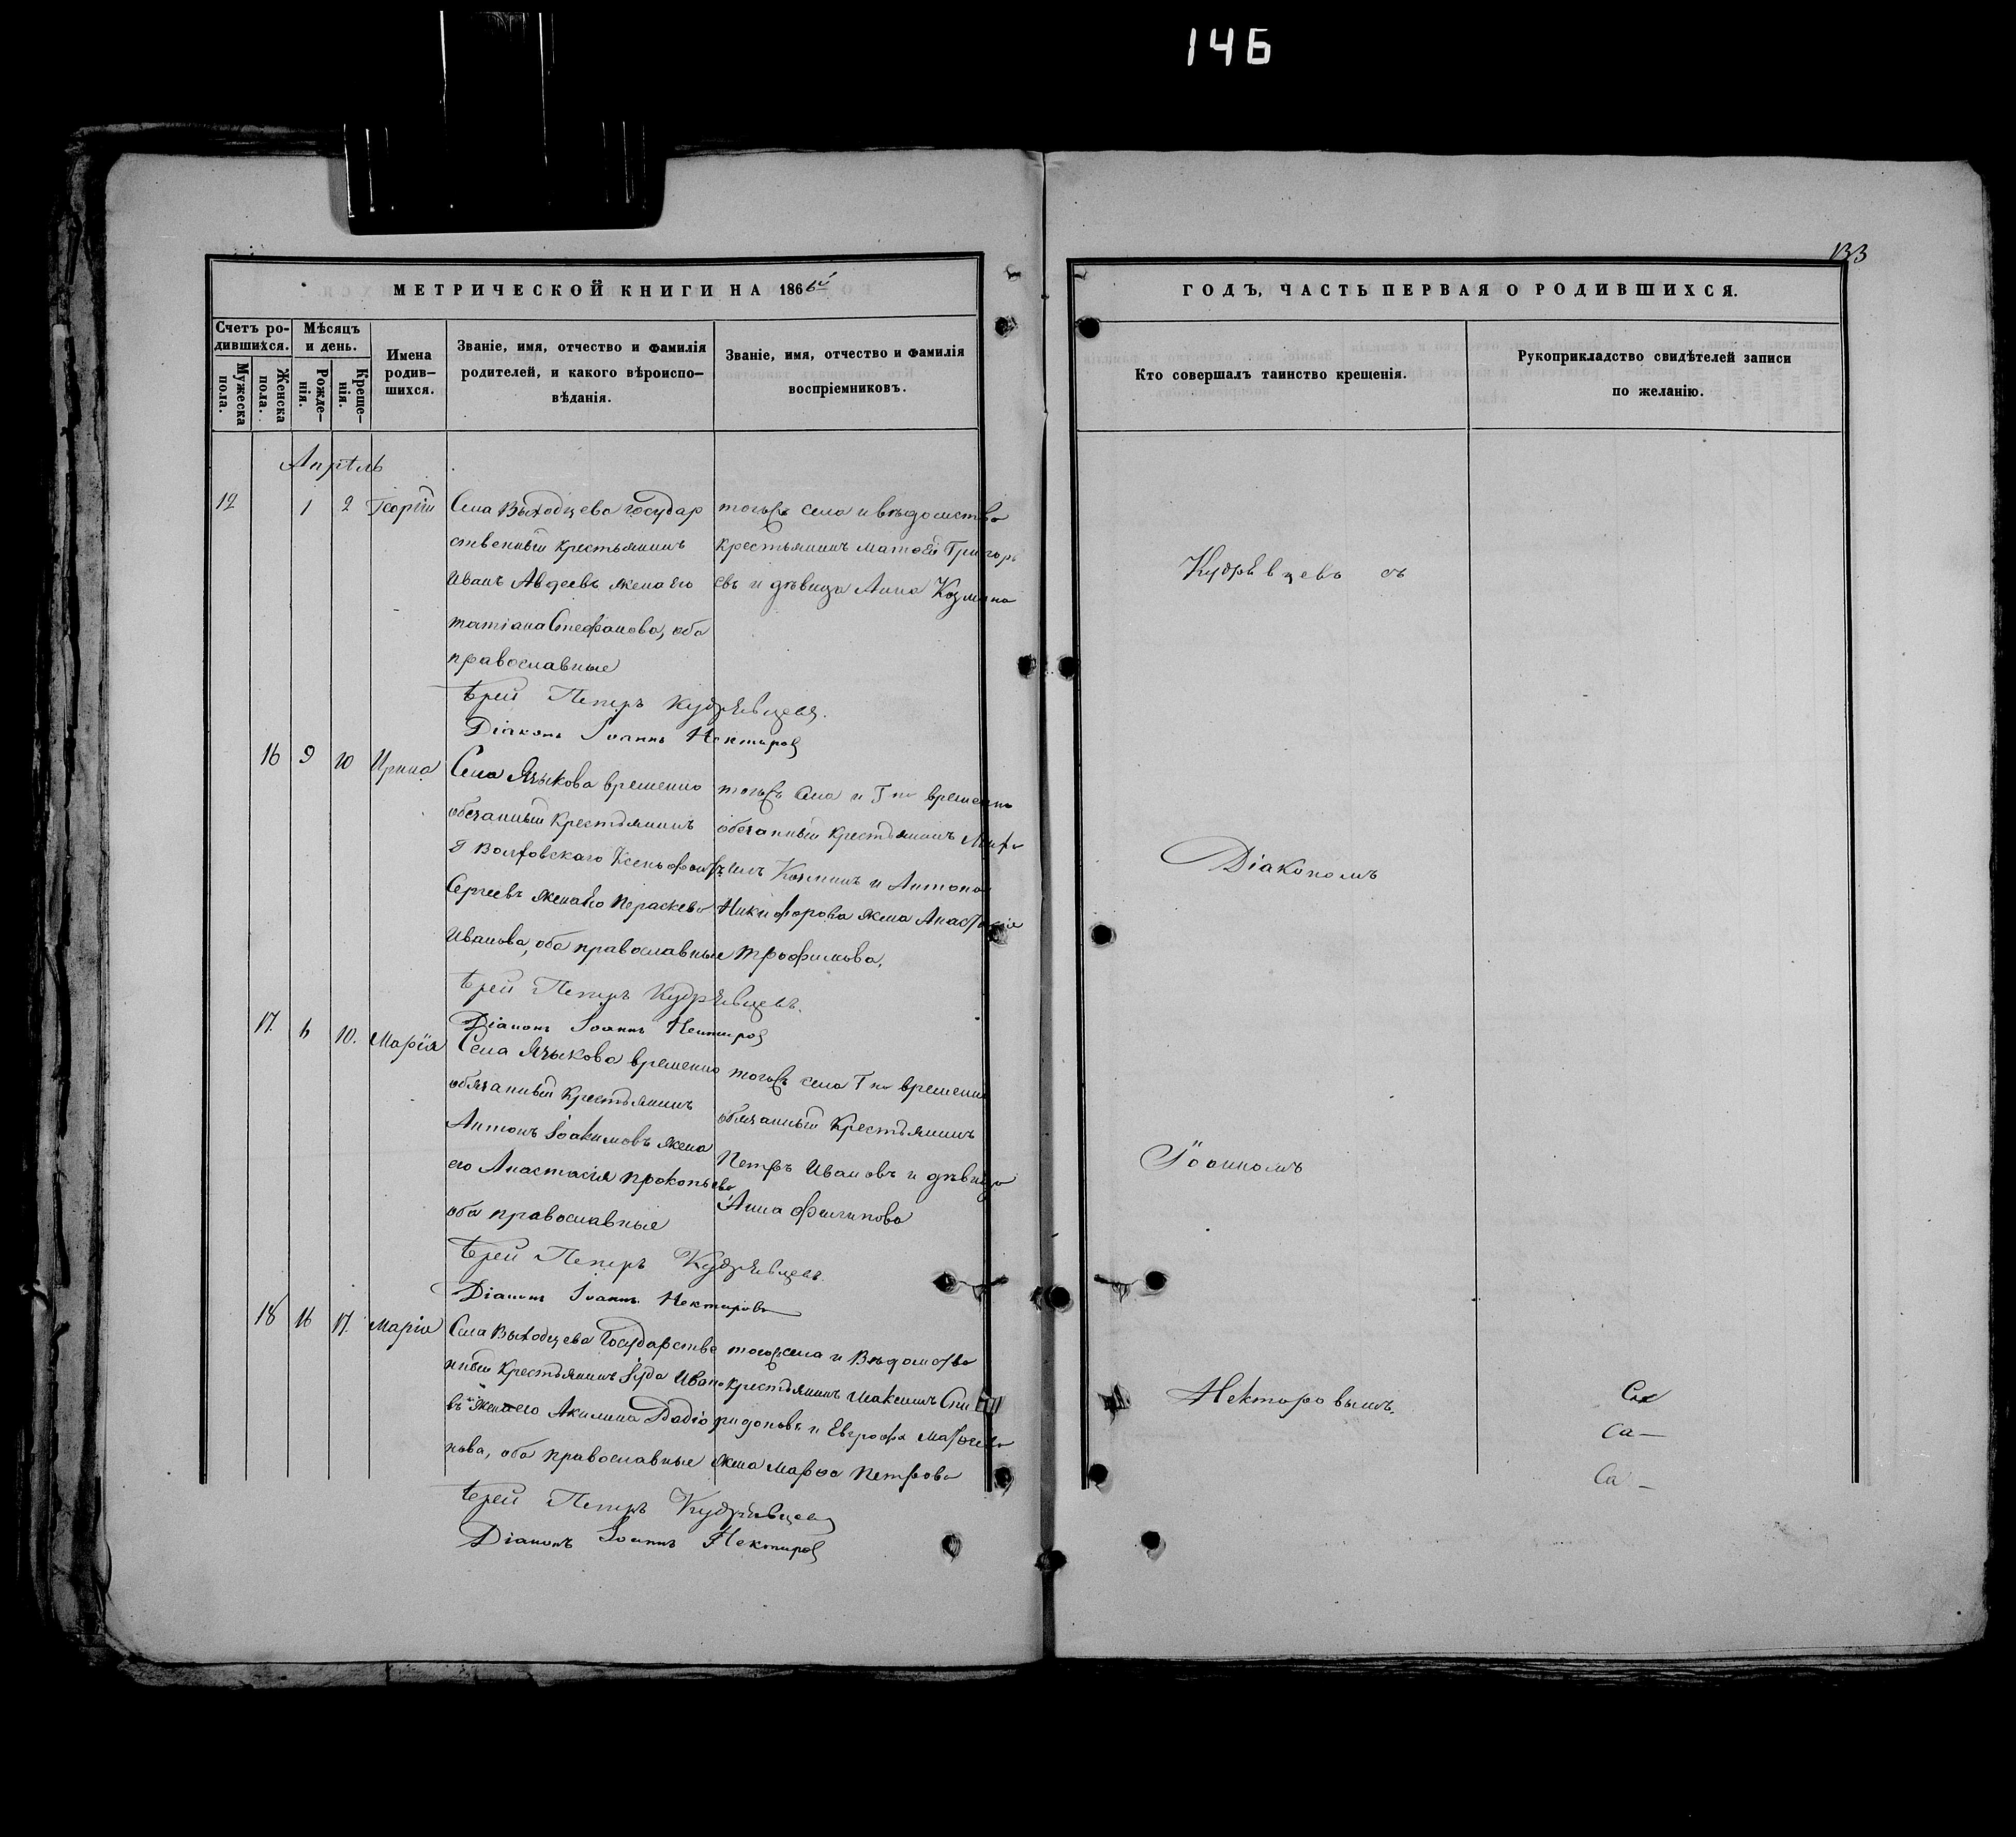 146
133
МЕТРИЧЕСКОЙ КНИГИ НА 1866й
ГОДЪ, ЧАСТЬ ПЕРВАЯ О РОДИВШИХСЯ.
Счетъ ро-
дившихся.
Мужеска
пола.
Женска
пола.
Мѣсяцъ
и день.
Рожде-
нія.
Креще-
нія.
Имена
родив-
шихся.
Званіе, имя, отчество и фамилія
родителей, и какого вѣроиспо-
вѣданія.
Званіе, имя, отчество и фамилія
воспріемниковъ.
Кто совершалъ таинство крещенія.
Рукоприкладство свидѣтелей записи
по желанію.
Апрѣль
12 1 2 Георгій
Села Выходцева государ
ственный крестьянинъ
Иванъ Авдеевъ жена его
татіана Стефанова, оба
православные
тогожъ села и вѣдомства
крестьянинъ матвей Григорь
евъ и дѣвица Анна Козмина
Іерей Петръ Кудрявцевъ.
Діаконъ Іоаннъ Нектаровъ
16 9 10 Ирина
Села Языкова временно
обязанный крестьянинъ
Г Волховскаго Ксенофонтъ
Сергеевъ жена его параскева
Иванова, оба православные
тогожъ села и Г на временно
обязанный крестьянинъ
Козминъ и Антона
Никифорова жена Анастасія
трофимова.
Іерей Петръ Кудрявцевъ.
Діаконъ Іоаннъ Нектаровъ
17. 6 10. Марія
Села Языкова временно
обязанный крестьянинъ
Антонъ Іоакимовъ жена
его Анастасія прокопьева
оба православные
тогожъ села Г на временно
обязанный крестьянинъ
Петръ Ивановъ и дѣвица
Анна филипова
Іерей Петръ Кудрявцевъ.
Діаконъ Іоаннъ Нектаровъ
18 16 17. Марія
Села Выходцева Государстве
нный крестьянинъ Іуда Ивано
въ жена его Акилина Родіо
нова, оба православные
тогожъ села и Вѣдомства
крестьянинъ Максимъ Спи
ридоновъ и Евграфа Матвеева
жена марѳа петрова
Іерей Петръ Кудрявцевъ
Діаконъ Іоаннъ Нектаровъ
Кудрявцевъ съ
Діакономъ
Іоанномъ
Нектаровымъ.
Са
Са —
Са —